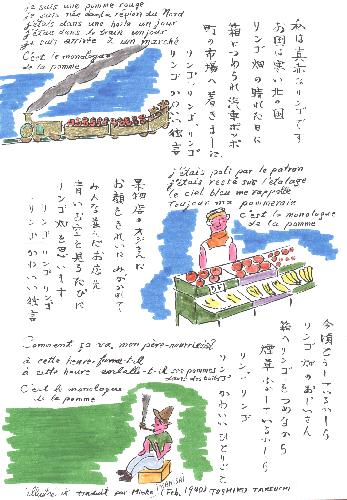 je suis une pomme rouge
je suis née dans la région du Nord
j'étais dans une boîte un jour
j'étais dans le train un jour
je suis arrivée à un marché
C'est le monologue
de la pomme
私は真赤なリンゴです
お国は寒い北の国
リンゴ畑の晴れた日に
箱につめられ汽車ポッポ
町の市場へ着きました
リンゴ リンゴ リンゴ
リンゴ かわいい独言
j'étais poli par le patron
j'étais resté sur l'étalage
le ciel bleu me rappelle
toujour ma pommeraie
C'est le monologue
de la pomme
果物店のオジさんに
お顔をきれいにみがかれて
みんな並んだお店先
青いお空を見るたびに
リンゴ畑を思います
リンゴ リンゴ リンゴ
リンゴ かわいい独言
Comment ça va, mon père-nourricier
à cette heure-fume-t-il
à cette heure emballe-t-il ses pommes
dans des boîtes
C'est le monologue
de la pomme
今頃どうしているかしら
リンゴ畑のおじいさん
箱へリンゴをつめながら
煙草ふかしているかしら
リンゴ リンゴ リンゴ
リンゴ かわいいひとりごと
illustré et traduit par Mioko
(Feb. 1990) TOSHIKO TAKEUCHI